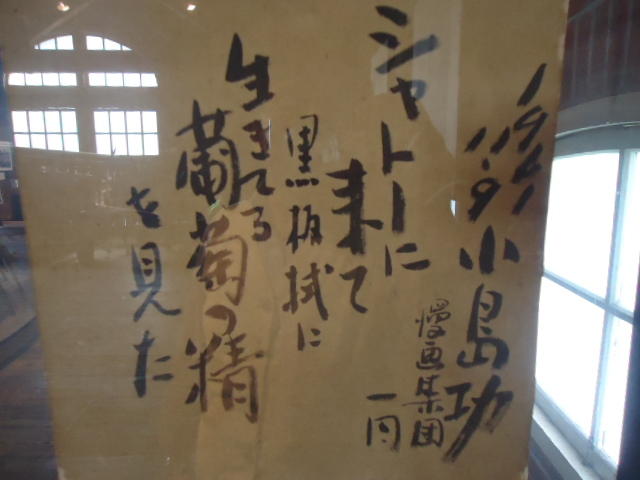 1961
11.9
小島功
漫画集団
一同
シャトーに
来て
黒板拭に
生きてる
葡萄の精
を見た